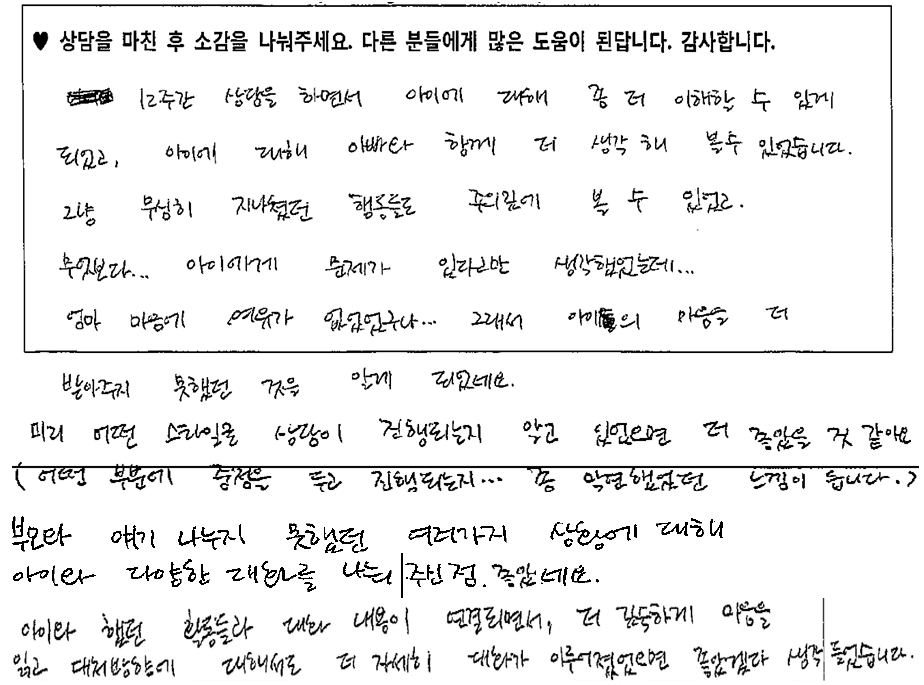 ♥ 상담을 마친 후 소감을 나눠주세요. 다른 분들에게 많은 도움이 된답니다. 감사합니다.
12주간 상담을 하면서 아이에 대해 좀 더 이해할 수 있게
되었고, 아이에 대해 아빠와 함께 더 생각해 볼수 있었습니다.
그냥 무심히 지나쳤던 행동들도 주의깊에 볼 수 있었고.
무엇보다... 아이에게 문제가 있다고만 생각했었는데...
엄마 마음에 여유가 없었었구나... 그래서 아이의 마음을 더
받아주지 못했던 것을 알게 되었네요.
미리 어떤 스타일로 상담이 진행되는지 알고 있었으면 더 좋았을 것 같아요
(어떤 부분에 중점을 두고 진행되는지... 좀 막연했었던 느낌이 듭니다.)
부모와 얘기 나누지 못했던 여러가지 상황에 대해
아이와 다양한 대화를 나눠 주신 점. 좋았네요.
아이와 했던 활동들과 대화 내용이 연결되면서, 더 깊숙하게 마음을
읽고 대처방향에 대해서도 더 자세히 대화가 이루어졌었으면 좋았겠다 생각 들었습니다.